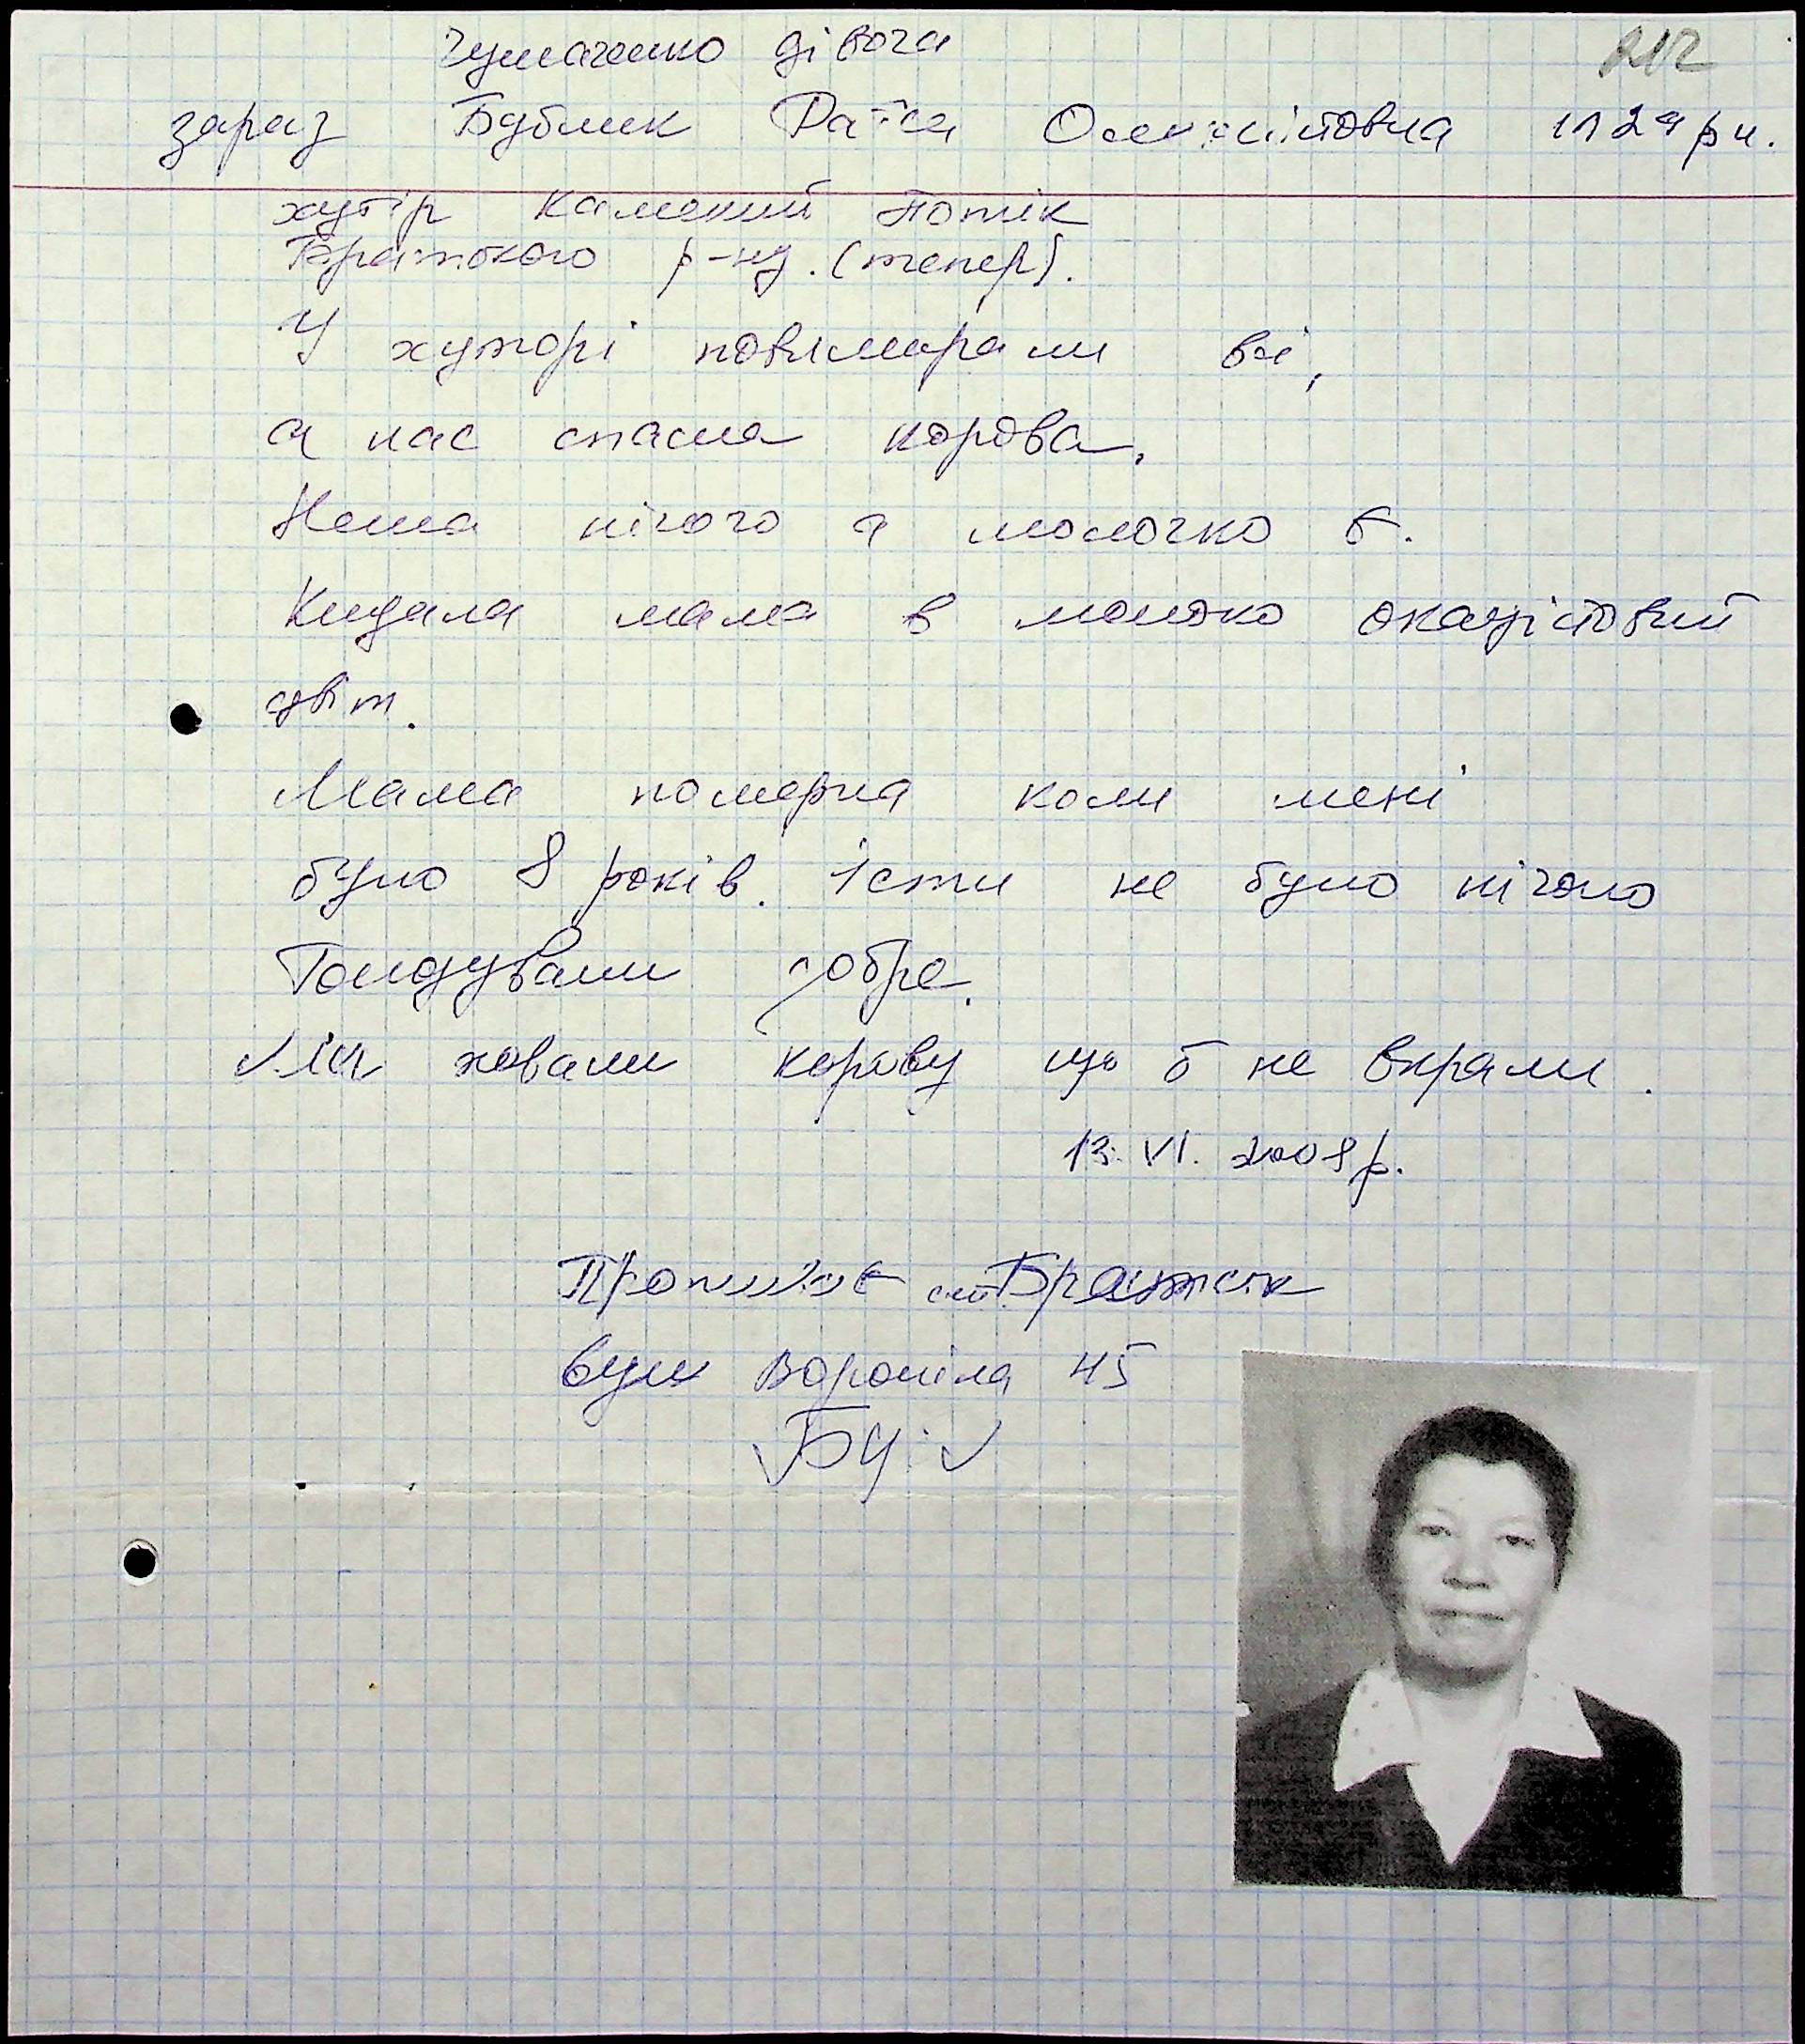 212
Чумаченко дівоча
зараз Бублик Раїса 1929 р н.
хутір Камений Потік
Братского р-ну. (тепер).
У хуторі повимирали всі,
а нас спасла корова.
Нема нічого а молочко є.
Кидала мама в молоко окаціїовий
цвіт.
Мама померла коли мені
було 8 років. їсти не було нічого
Голодували добре.
Ми ховали корову що б не вкрали.
13. VI. 2008 р.
смт Братськ
вул Вороніна 45